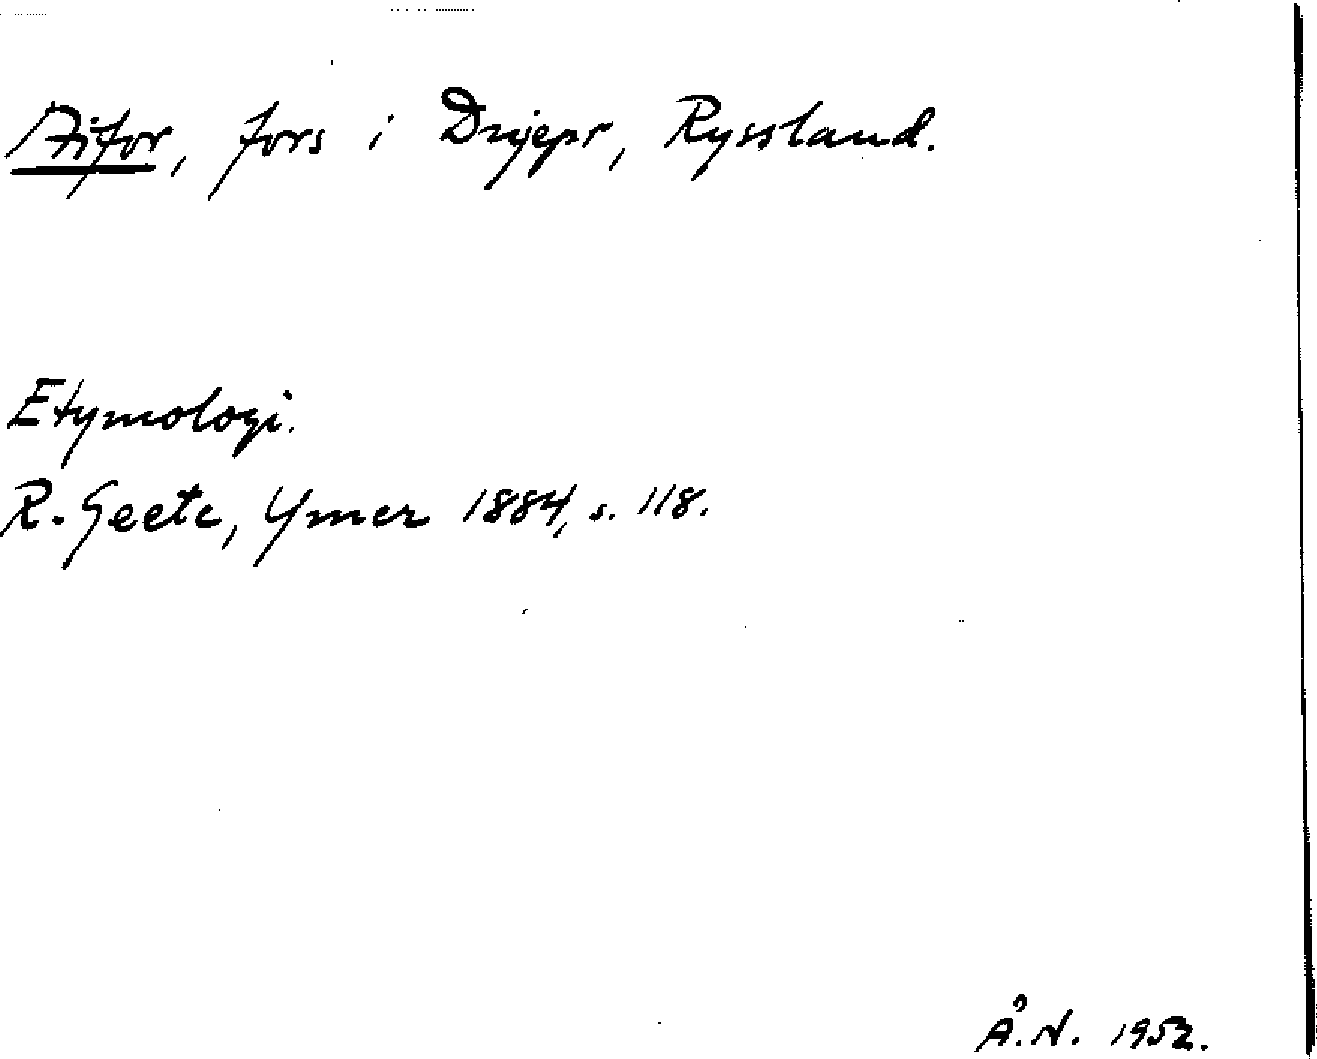 Aifor, fors i Dnjepr, Ryssland.
Etymologi.
R. Geete, Ymer 1884, s. 118.
Å.N. 1952.